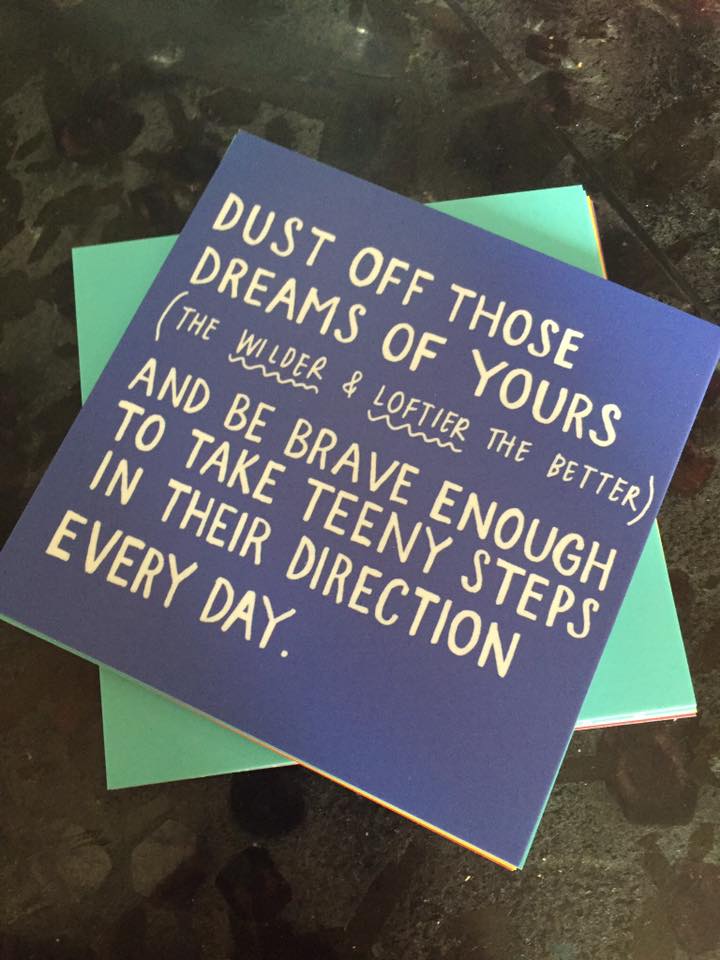 DUST OFF THOSE
DREAMS OF YOURS
(THE WILDER & LOFTIER THE BETTER)
AND BE BRAVE ENOUGH
TO TAKE TEENY STEPS
IN THEIR DIRECTION
EVERY DAY.